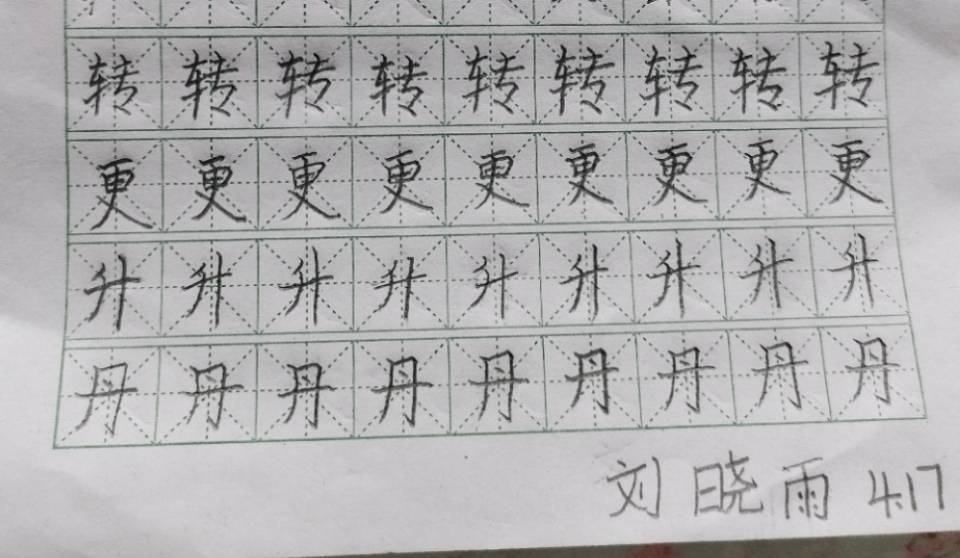 转转转转转转转转转
更更更更更更更更更
升升升升升升升升升
丹丹丹丹丹丹丹丹丹
刘晓雨 4.17